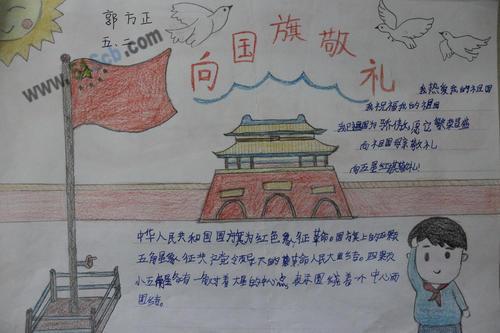 郭方正
五.二
向国旗敬礼
我热爱我的祖国
我祝福我的祖国
我的祖国为你伟大,愿它繁荣昌盛
向祖国母亲敬礼
向五星红旗敬礼!
中华人民共和国国旗为红色象征革命。国旗上的五颗
五角星象征共产党领导下的革命人民大团结。四颗
小五角星各有一角对着大星的中心点,表示围绕着一个中心而
团结。